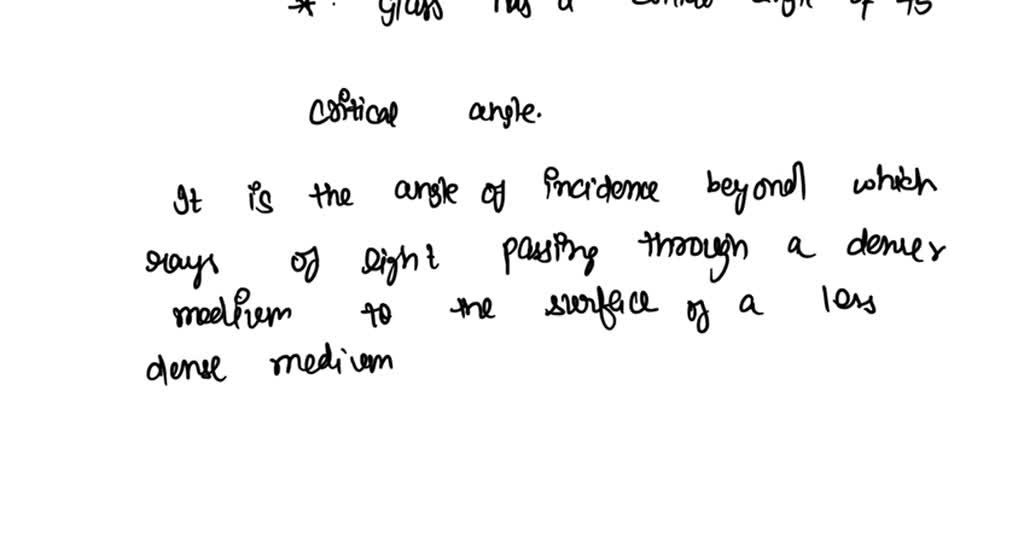 * Glass has a critical angle of 45
critical angle.
It is the angle of incidence beyond which
rays of light passing through a denser
medium to the surface of a less
dense medium